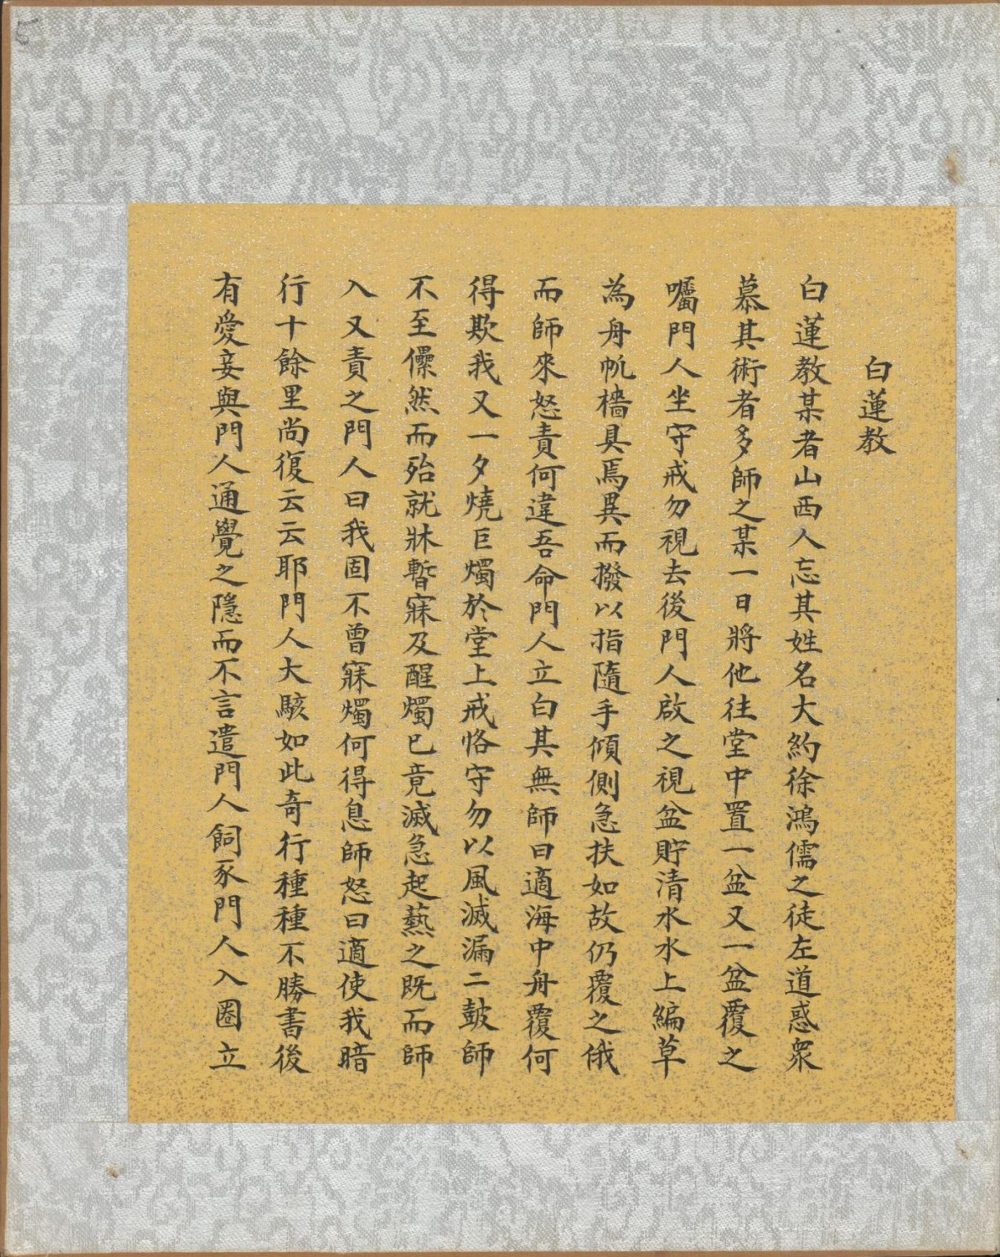 白蓮教
白蓮教某者山西人忘其姓名大約徐鴻儒之徒左道惑眾
慕其術者多師之某一日將他往堂中置一盆又一盆覆之
囑門人坐守戒勿視去後門人啟之視盆貯清水水上編草
為舟帆檣具焉異而撥以指隨手傾側急扶如故仍覆之俄
而師來怒責何違吾命門人立白其無師曰適海中舟覆何
得欺我又一夕燒巨燭於堂上戒恪守勿以風滅漏二鼓師
不至儽然而殆就牀暫寐及醒燭已竟滅急起爇之既而師
入又責之門人曰我固不曾寐燭何得息師怒曰適使我暗
行十餘里尚復云云耶門人大駭如此奇行種種不勝書後
有愛妾與門人通覺之隱而不言遣門人飼豕門人入圈立
5